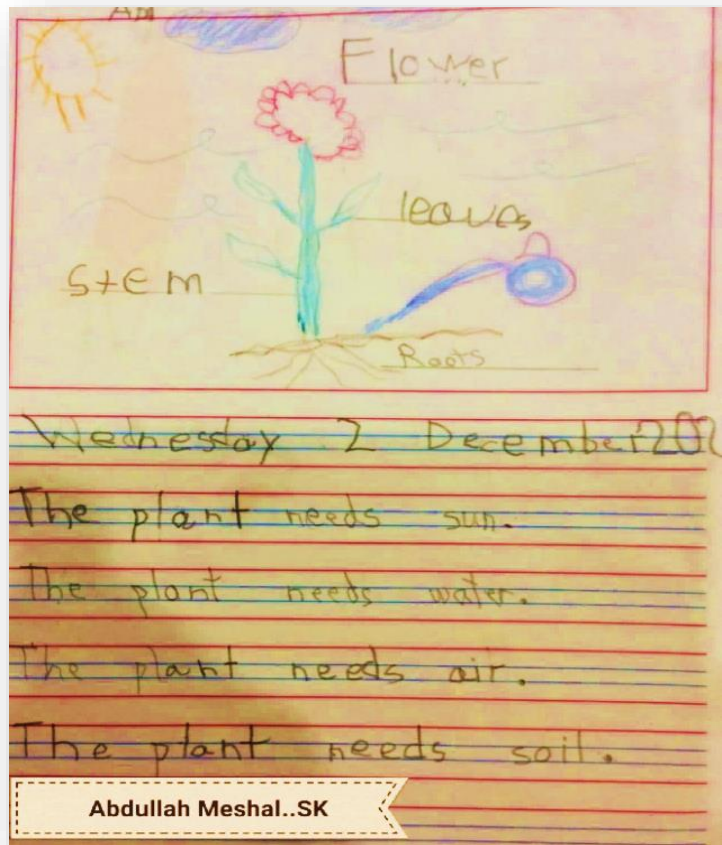 Flower
leaves
stem
Roots
Wednesday 2 December 202
The plant needs sun.
The plant needs water.
The plant needs air.
The plant needs soil.
Abdullah Meshal..SK